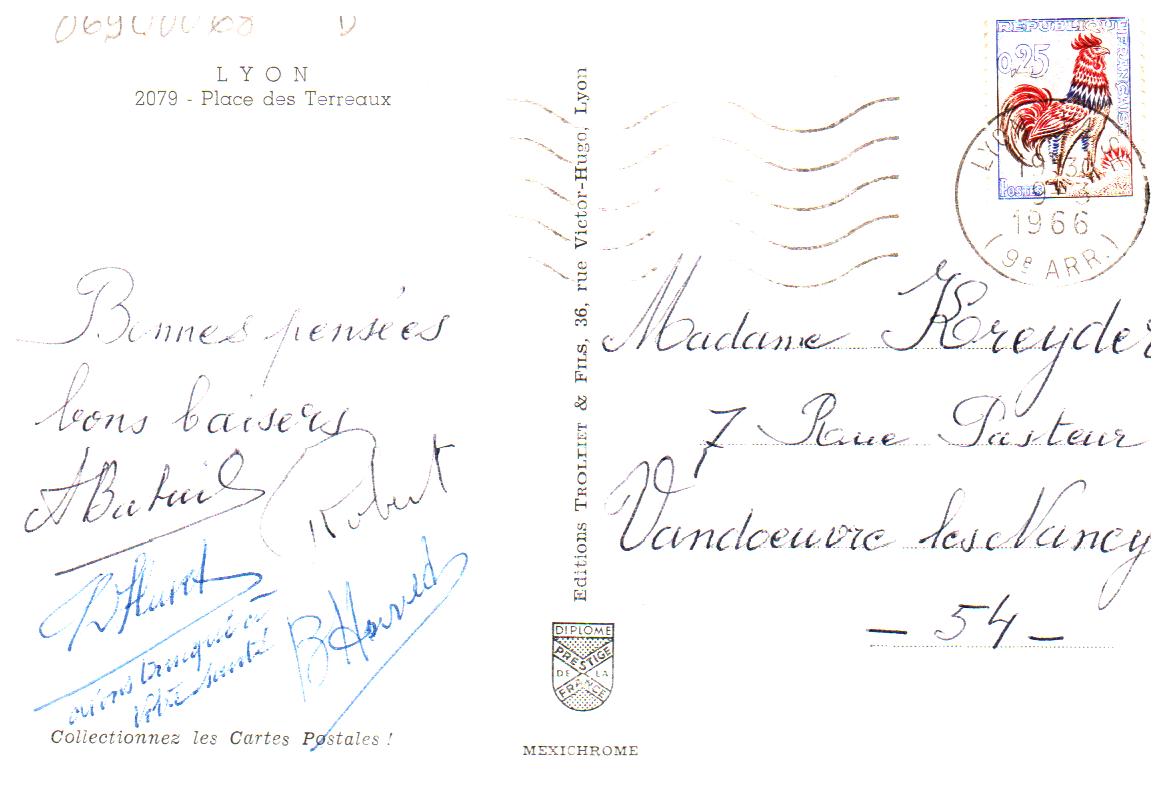 LYON
2079 - Place des Terreaux
Bonnes pensées
bons baisers
Robert
avons trinqué à
votre santé
Collectionnez les Cartes Postales !
Editions TROLLIET & FILS, 36, rue Victor-Hugo, Lyon
DIPLOME
PRESTIGE
DE LA
FRANCE
MEXICHROME
REPUBLIQUE FRANÇAISE
0,25
POSTES
LYON
1966
(9e ARR.)
Madame Kreyder
7 Rue Pasteur
Vandoeuvre les Nancy
- 54 -